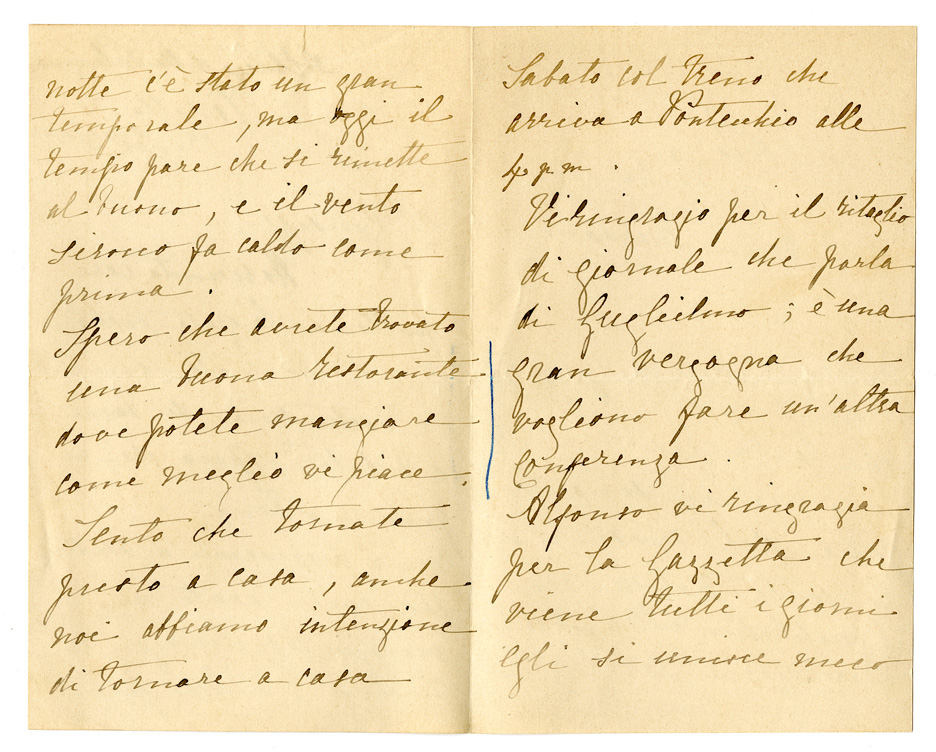 notte c'è stato un gran
temporale, ma oggi il
tempo pare che si rimette
al buono, e il vento
sirono fa caldo come
prima.
Spero che avrete trovato
una buona restorante
dove potete mangiare
come meglio vi piace.
Sento che tornate
presto a casa, anche
noi abbiamo intenzione
di tornare a casa
Sabato col treno che
arriva a Pontecchio alle
4 pm.
Vi ringrazio per il ritaglio
di giornale che parla
di Guglielmo; è una
gran vergogna che
vogliono fare un'altra
Conferenza.
Alfonso vi ringrazia
per la Gazzetta che
viene tutti i giorni
Egli si unisce meco